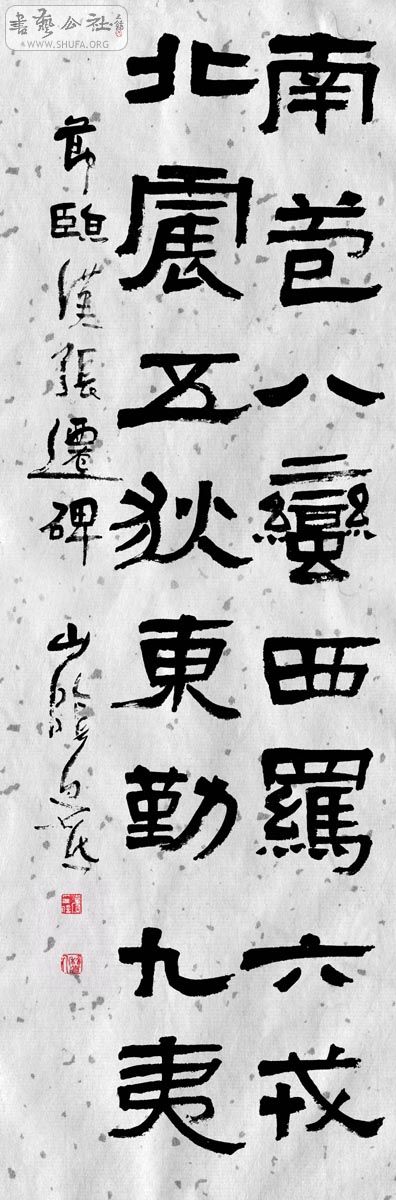 書藝公社
WWW.SHUFA.ORG
南苞八蠻西羈六戎
北震五狄東勤九夷
節臨漢張遷碑
山陰